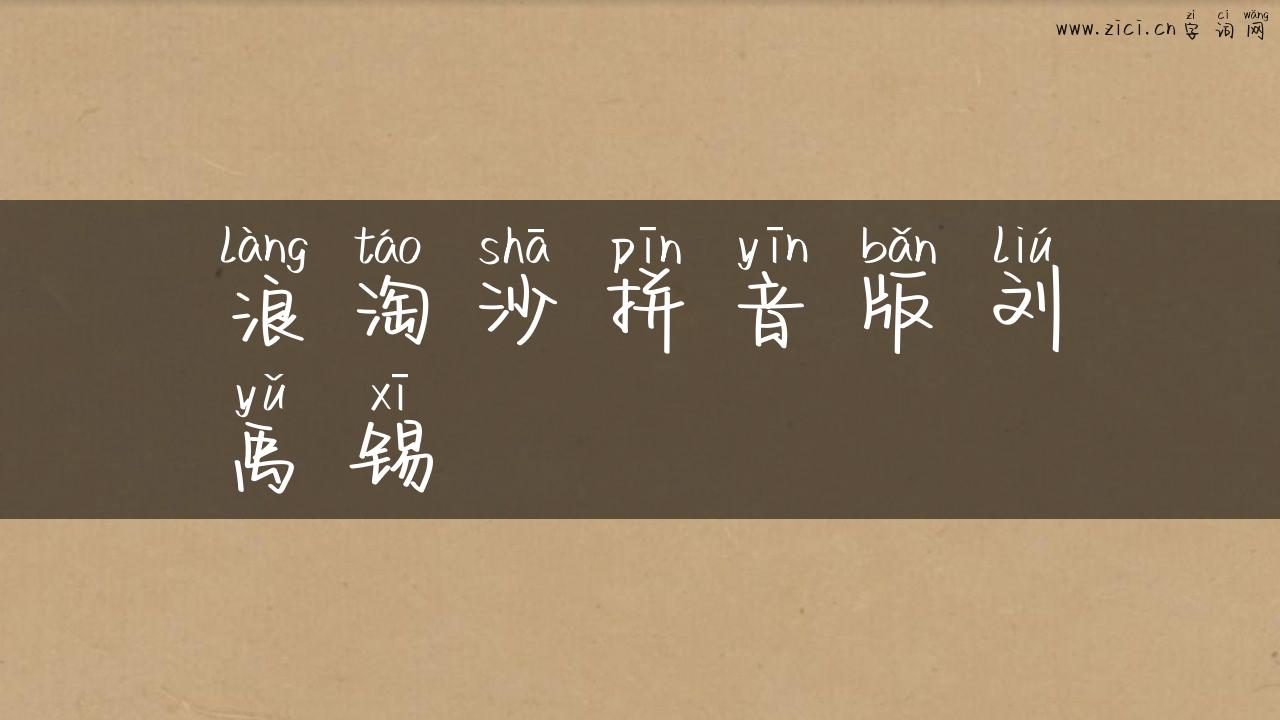 zì cí wǎng
www.zici.cn 字词网
làng táo shā pīn yīn bǎn liú
浪淘沙拼音版刘
yǔ xī
禹锡